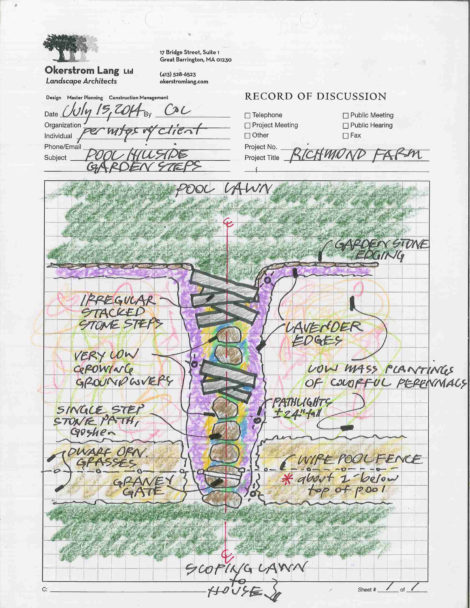 17 Bridge Street, Suite 1
Great Barrington, MA 01230
(413) 528-6523
okerstromlang.com
Okerstrom Lang Ltd
Landscape Architects
Design Master Planning Construction Management
RECORD OF DISCUSSION
Date July 15, 2014 By
Organization
Individual per mtgs w/ client
Phone/Email
Subject POOL HILLSIDE
GARDEN STEPS
Telephone
Public Meeting
Project Meeting
Public Hearing
Other
Fax
Project No.
Project Title RICHMOND FARM
POOL LAWN
GARDEN STONE
EDGING
IRREGULAR
STACKED
STONE STEPS
LAVENDER
EDGES
VERY LOW
GROWING
GROUNDCOVERS
LOW MASS PLANTINGS
OF COLORFUL PERENNIALS
PATHLIGHTS
± 24" tall
SINGLE STEP
STONE PATH,
Goshen
DWARF ORN.
GRASSES
GRANEY
GATE
WIRE POOL FENCE
* about 2' below
top of pool
SLOPING LAWN
to
HOUSE
C:
Sheet # 1 of 1